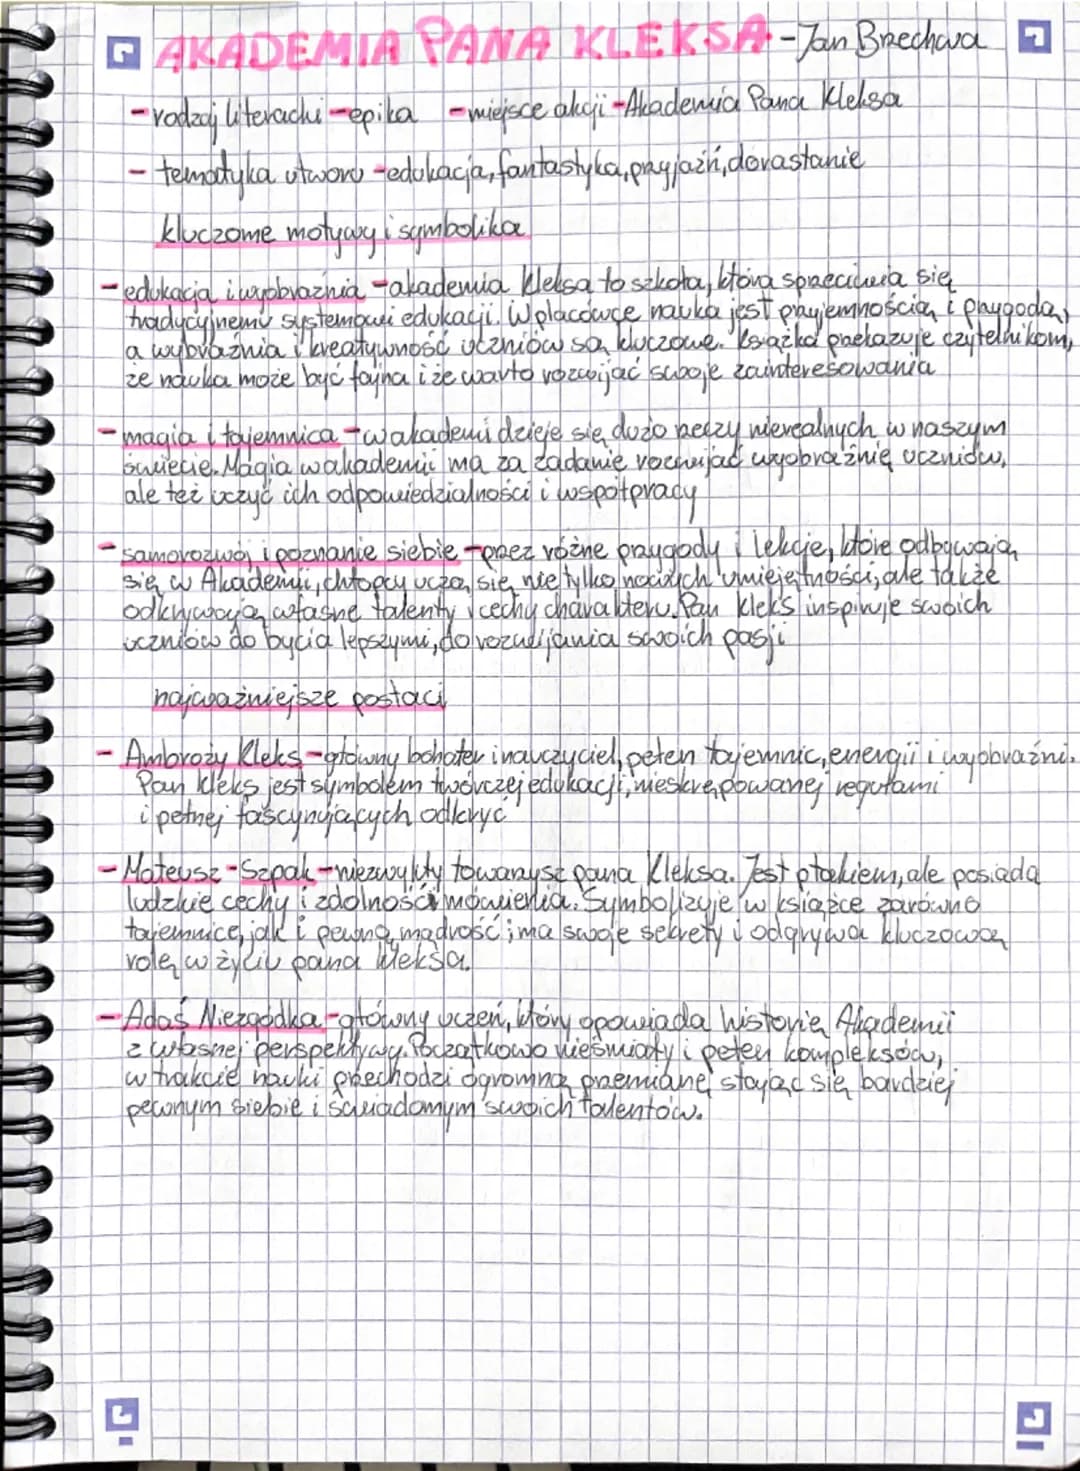 AKADEMIA PANA KLEKSA - Jan Brzechwa
- rodzaj literacki - epika - miejsce akcji - Akademia Pana Kleksa
- tematyka utworu - edukacja, fantastyka, przyjaźń, dorastanie
kluczowe motywy i symbolika
- edukacja i wyobraźnia - akademia Kleksa to szkoła, która sprzeciwia się
tradycyjnemu systemowi edukacji. W placówce nauka jest przyjemnością i przygodą,
a wyobraźnia i kreatywność uczniów są kluczowe. Książka przekazuje czytelnikom,
że nauka może być fajna i że warto rozwijać swoje zainteresowania
- magia i tajemnica - w akademi dzieje się dużo rzeczy nierealnych w naszym
świecie. Magia w akademii ma za zadanie rozwijać wyobraźnię uczniów,
ale też uczyć ich odpowiedzialności i współpracy
- samorozwój i poznanie siebie - przez różne przygody i lekcje, które odbywają
się w Akademii, chłopcy uczą się nie tylko nowych umiejętności, ale także
odkrywają własne talenty i cechy charakteru. Pan Kleks inspiruje swoich
uczniów do bycia lepszymi, do rozwijania swoich pasji
najważniejsze postaci
- Ambroży Kleks - główny bohater i nauczyciel, pełen tajemnic, energii i wyobraźni.
Pan Kleks jest symbolem twórczej edukacji, nieskrępowanej regułami
i pełnej fascynujących odkryć
- Mateusz - Szpak - niezwykły towarzysz pana Kleksa. Jest ptakiem, ale posiada
ludzkie cechy i zdolność mówienia. Symbolizuje w książce zarówno
tajemnicę, jak i pewną mądrość; ma swoje sekrety i odgrywa kluczową
rolę w życiu pana Kleksa.
- Adaś Niezgódka - główny uczeń, który opowiada historię Akademii
z własnej perspektywy. Początkowo nieśmiały i pełen kompleksów,
w trakcie nauki przechodzi ogromną przemianę, stając się bardziej
pewnym siebie i świadomym swoich talentów.